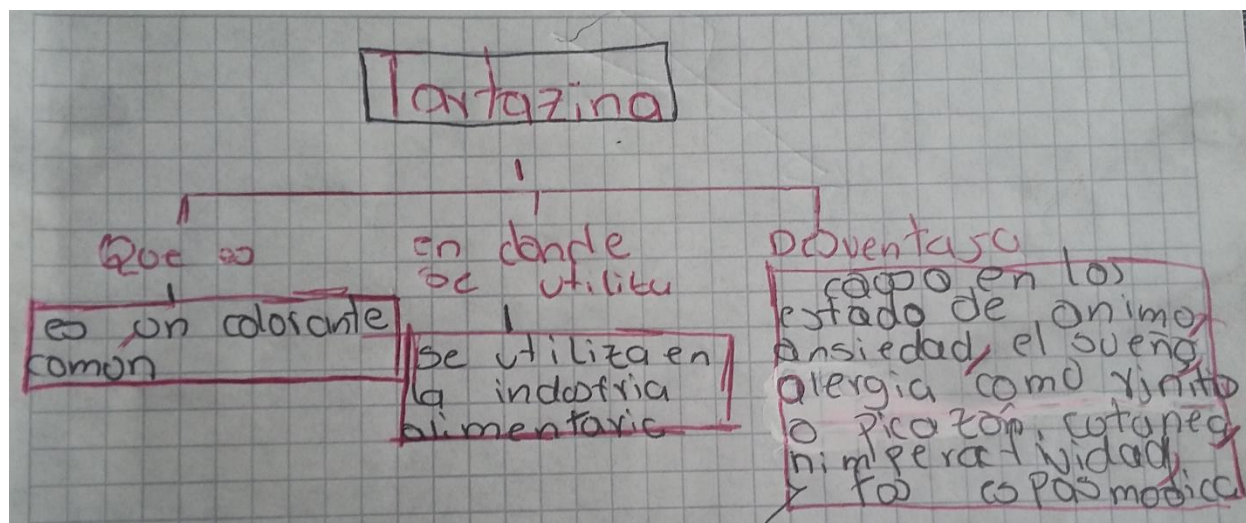 Tartazina
Que es
es un colorante
comun
en donde
se utiliza
se utiliza en
la industria
alimentaria
Desventasa
en los
estado de animo,
ansiedad, el sueño,
alergia como rinitis
o picazon, cutanea,
himperactividad,
y tos espasmodica